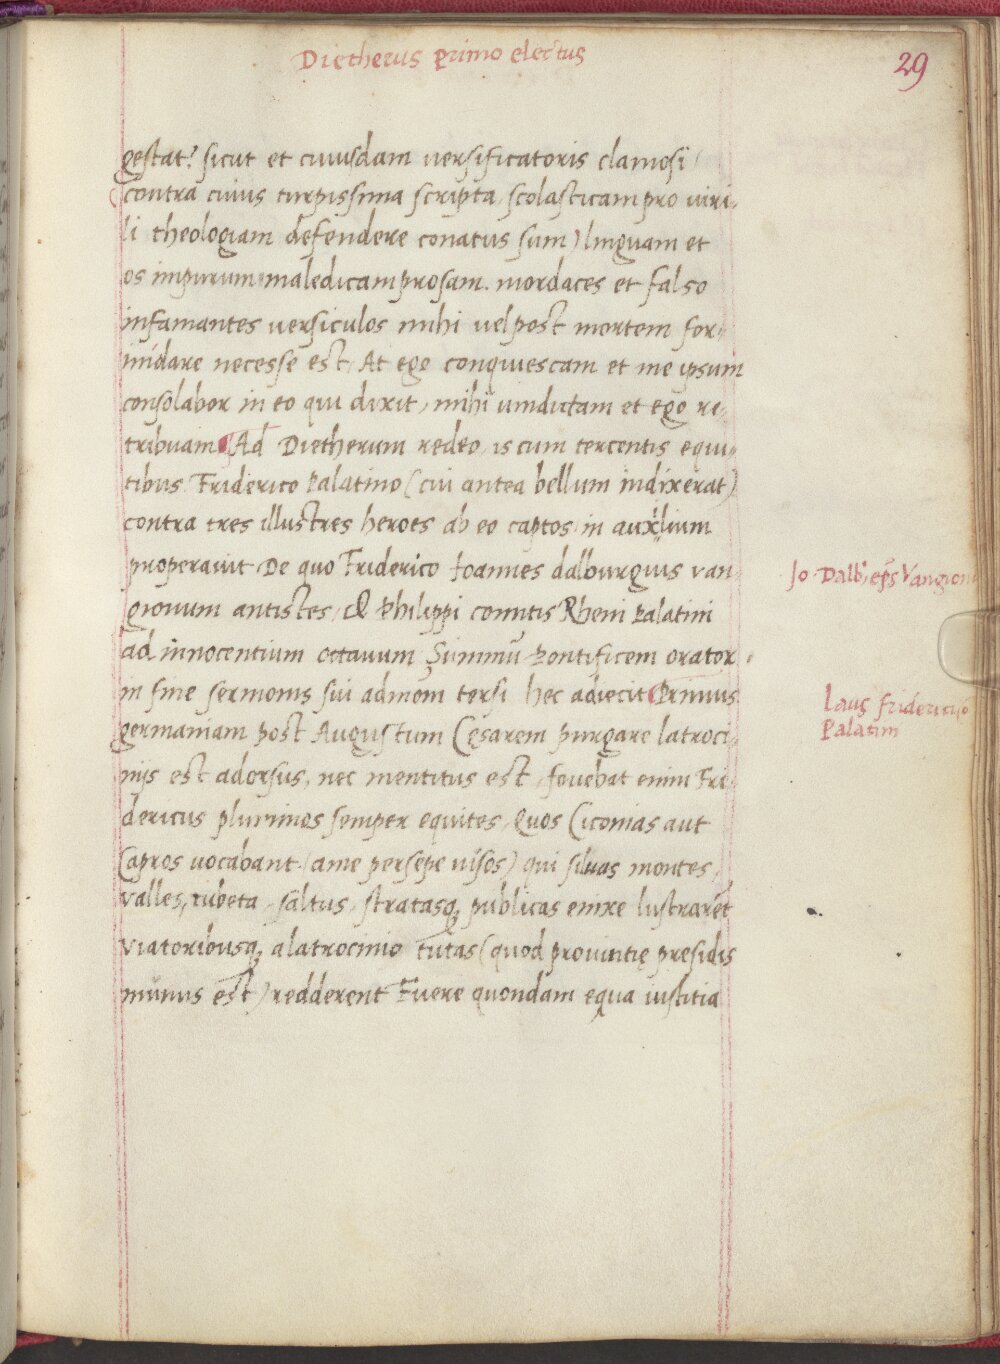 Dietherus primo electus
29
gestat? sicut et cuiusdam versificatoris clamosi /
(contra cuius turpissima scripta, scolasticam pro viri-
li theologiam defendere conatus sum) linguam et
os impurum, maledicam prosam. mordaces et falso
infamantes versiculos mihi vel post mortem for-
midare necesse est, At ego conquiescam et me ipsum
consolabor in eo qui dixit, mihi vindictam et ego re-
tribuam Ad Dietherum redeo, is cum tercentis equi-
tibus Friderico Palatino (cui antea bellum indixerat)
contra tres illustres heroes ab eo captos, in auxilium
properavit. De quo Friderico Ioannes dalburgius van-
gionum antistes, & Philippi comitis Rheni Palatini
ad innocentium octavum Summũ Pontificem orator,
in fine sermonis sui admodum tersi hec adiecit Primus
germaniam post Augustum Cęsarem purgare latroci-
nijs est adorsus, nec mentitus est, fovebat enim Fri-
dericus plurimos semper equites, Quos Ciconias aut
Capros vocabant (a me persępe visos) qui silvas montes,
valles, rubeta, saltus, stratasq; publicas enixe lustrarent
Viatoribusq; a latrocinio tutas (quod provintię presidis
munus est) redderent Fuere quondam equa iustitia
Jo. Dalb, ep̃s Vangion
Laus friderici
Palatini